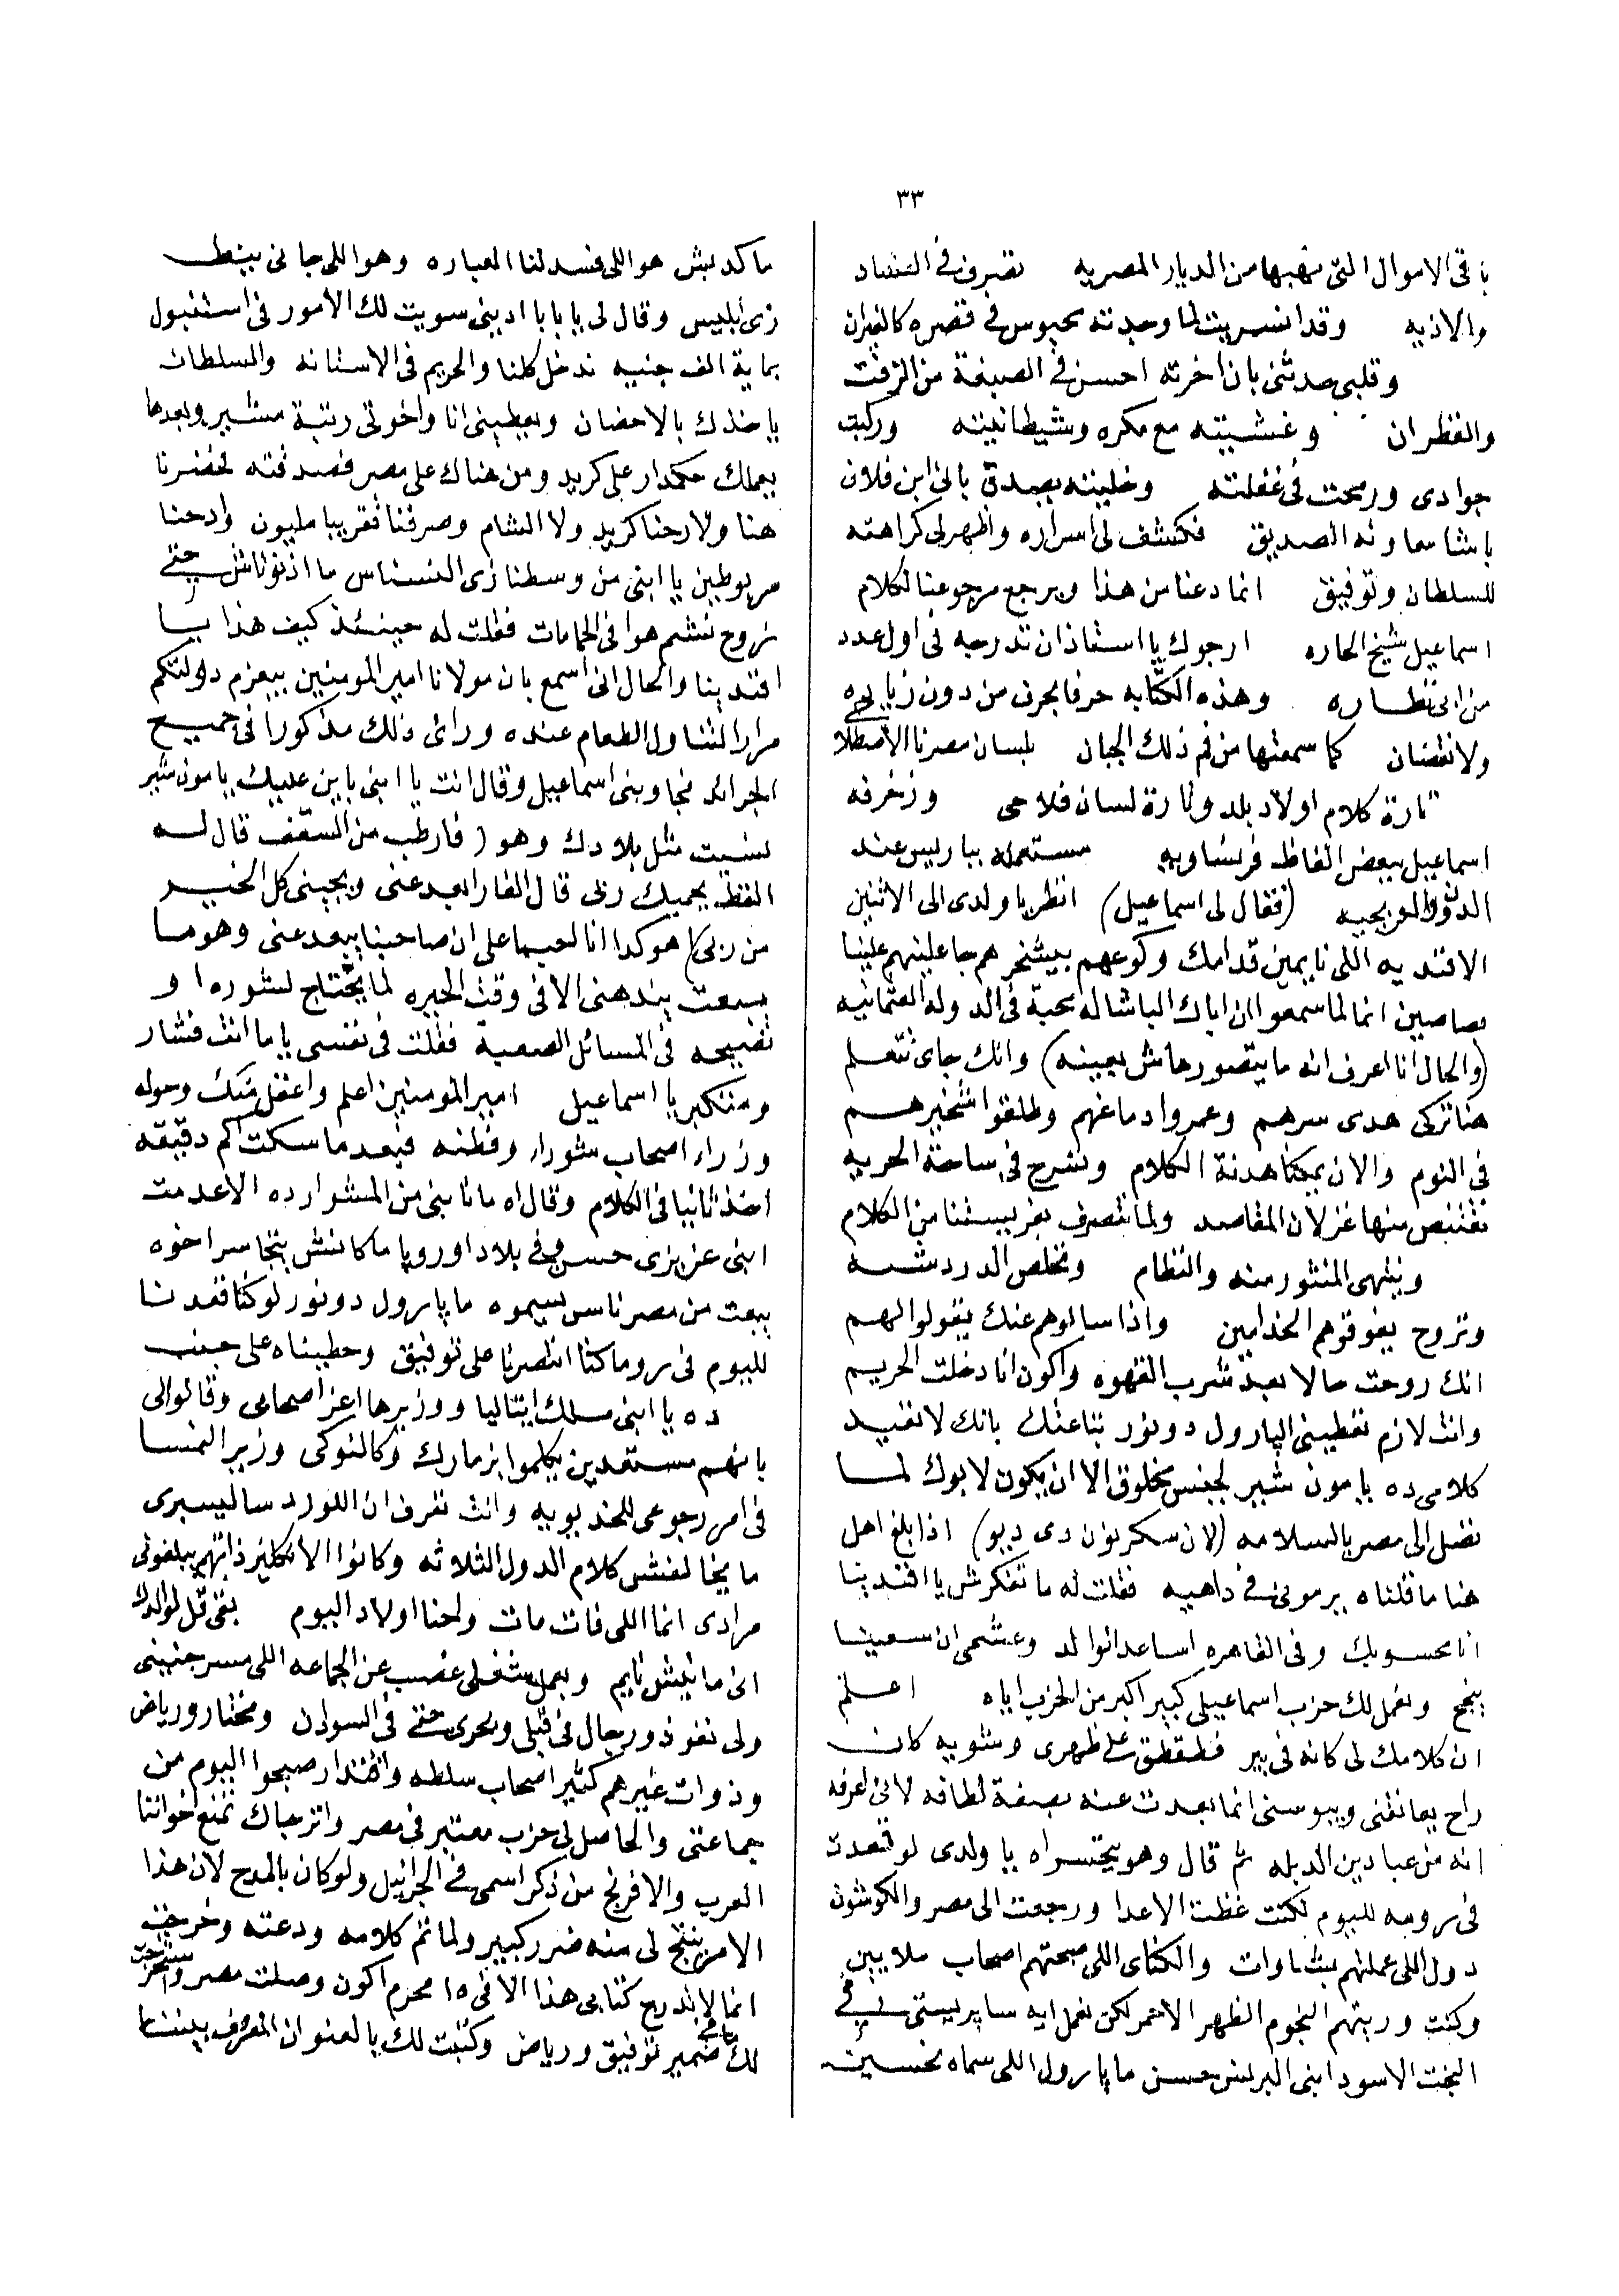 ٣٣
باقى الاموال التى نهبها من الديار المصريه تصرف فى الفساد
والاذيه وقد انسريت لما وجدته محبوس فى قصره كالفيران
وقلبى حدثنى بان اخرته احسن فى الصيفة من الزفت
والقطران وغشيته مع مكره وشيطانيته وركبت
جوادى ورمحت فى غفلته وخليته يصدق بانى ابن فلان
باشا سماونه الصديق فكشف لى اسراره واظهر لى كراهته
للسلطان وتوفيق انما دعنا من هذا ويرجع مرجوعنا لكلام
اسماعيل شيخ الحاره ارجوك يا استاذ ان تدرجه فى اول عدد
من ابى نظاره وهذه الكتابه حرفا بحرف من دون زياده
ولا نقصان كما سمعتها من فم ذلك الجبان بلسان مصرنا الاصطلاحى
تارة كلام اولاد بلد وتارة لسان فلاحى وزخرفه
اسماعيل ببعض الفاظ فرنساويه مستعمله بباريس عند
(فقال لى اسماعيل) انظر يا ولدى الى الاثنين
الافنديه اللى نايمين قدامك وكوعهم بيشخر هم جاعلينهم علينا
بصاصين انما لما سمعوا ان اباك الباشا له محبة فى الدوله العثمانيه
(والحال انا اعرف انه ما يتصورهاش بعينه) وانك جاى تتعلم
هنا تركى هدى سرهم وعمروا دماغهم وطلقوا شخيرهم
فى النوم والان يمكنا هدنة الكلام ونسرح فى ساحة الحريه
نقتنص منها غزلان المقاصد ولما نتصرف بغريستنا من الكلام
وينتهى المنثور منه والنظام ونخلص الدردشه
وتروح يفوقوهم الخدامين واذا سالوهم عنك يقولوا لهم
انك روحت حالا بعد شرب القهوه واكون انا دخلت الحريم
وانت لازم تعطينى الپارول دونور بتاعتك بانك لا تفيد
كلامى ده يا مون شير لجنس مخلوق الا ان يكون لابوك لما
تصل الى مصر بالسلامه (لان سكرتون دى ديو) اذا بلغ اهل
هنا ما قلناه يرمونى فى داهيه فقلت له ما تفكرش يا افندينا
انا محسوبك وفى القاهره اساعد الوالد وعشمى ان سعينا
ينجح ونعمل لك حزب اسماعيلى كبير اكبر من الحزب اياه اعلم
ان كلامك لى كانه فى بير فطقطق على ظهرى وشويه كان
راح يعانقنى ويبوسنى انما بعدت عنه بصفة لطافه لانى اعرفه
انه من عبادين الدبله ثم قال وهو يتحسراه يا ولدى لو قعدت
فى رومه لليوم لكنت غظت الاعدا ورجعت الى مصر والكوشون
دول اللى عملتهم بشاوات والكناى اللى صبحتهم اصحاب ملايين
وكنت وريتهم النجوم الظهر الاحمر لكن نعمل ايه سا پريستى فى
البخت الاسود ابنى البرنس حسن ما پارول اللى سماه بحسين
ما كدبش هو اللى فسد لنا العباره وهو اللى جانى بينط
زى ابليس وقال لى يا بابا ادينى سويت لك الامور فى استنبول
بماية الف جنيه ندخل كلنا والحريم فى الاستانه والسلطان
ياخذك بالاحضان ويعطينى انا واخوتى رتبة مشير وبعدها
يعملك حكمدار على كريد ومن هناك على مصر فصدقته لحضرنا
هنا ولا رحنا كريد ولا الشام وصرفنا تقريبا مليون وادحنا
مربوطين يا ابنى من وسطنا زى النسناس ما اذنوناش حتى
نروح نشم هوا فى الحمامات فقلت له حينئذ كيف هذا يا
افندينا والحال انى اسمع بان مولانا امير المومنين بيعزم دولتكم
مرارا لتناول الطعام عنده وراى ذلك مذكورا فى جميع
الجرائد فجاوبنى اسماعيل وقال انت يا ابنى باين عليك يا مون شير
نسيت مثل بلادك وهو (فار طب من السقف قال له
القط يحميك ربى قال الفار ابعد عنى ويجينى كل الخير
من ربى) هو كدا انا لحبما على ان صاحبنا يبعد عنى وهو ما
يبعت يندهنى الا فى وقت الحيره لما يحتاج لشوره او
نصيحه فى المسائل الصعبة فقلت فى نفسى ياما انت فشار
ومتكبر يا اسماعيل امير المومنين اعلم واعقل منك وحوله
وزراء اصحاب شوراء وفطنه فبعدما سكت كم دقيقه
اخذ ثانيا فى الكلام وقال اه ما نابنى من المشوار ده الا عدمت
ابنى عزيزى حسن وفى بلاد اوروپا ما كانش يتجاسر اخوه
يبعت من مصر ناس يسموه ما پارول دونور لو كنا قعدنا
لليوم فى روما كنا انتصرنا على توفيق وحطيناه على جنب
ده يا ابنى ملك ايتاليا ووزيرها اعز اصحابى وقالوا لى
بانهم مستعدين يكلموا بزمارك وكالنوكى وزير النمسا
فى امر رجوعى للخديويه وانت تعرف ان اللورد ساليسبرى
ما يخالفنش كلام الدول الثلاثه وكانوا الانكليز ذاتهم يبلغونى
مرادى انما اللى فات مات ولحنا اولاد اليوم بقى قل لوالدك
انى مانيش نايم وبعمل شغلى غصب عن الجماعه اللى مسرجنينى
ولى نفوذ ورجال فى قبلى وبحرى حتى فى السودان ومختار ورياض
وذوات غيرهم كثير اصحاب سلطه واقتدار صبحوا اليوم من
جماعتى والحاصل لى حزب معتبر فى مصر واترجاك تمنع اخواننا
العرب والافرنج من ذكر اسمى فى الجرانيل ولو كان بالمدح لان هذا
الامر ينتج لى منه ضرر كبير ولما تم كلامه ودعته وخرجت
انما لا تدرج كتابى هذا الا فى ١٥ محرم اكون وصلت مصر واستخرجت
لك ما فى ضمير توفيق ورياض وكتبت لك بالعنوان المعروف بيننا